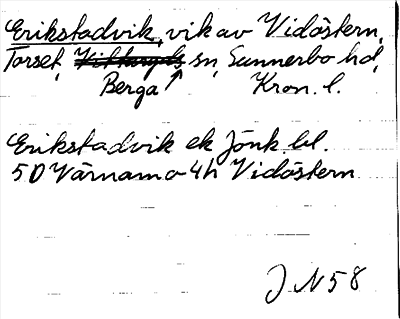 Erikstadvik, vik av Vidöstern,
Torset, sn, Sunnerbo hd,
Berga Kron. l.
Erikstadvik ek Jönk. bl.
5D Värnamo 4h Vidöstern
J N 58